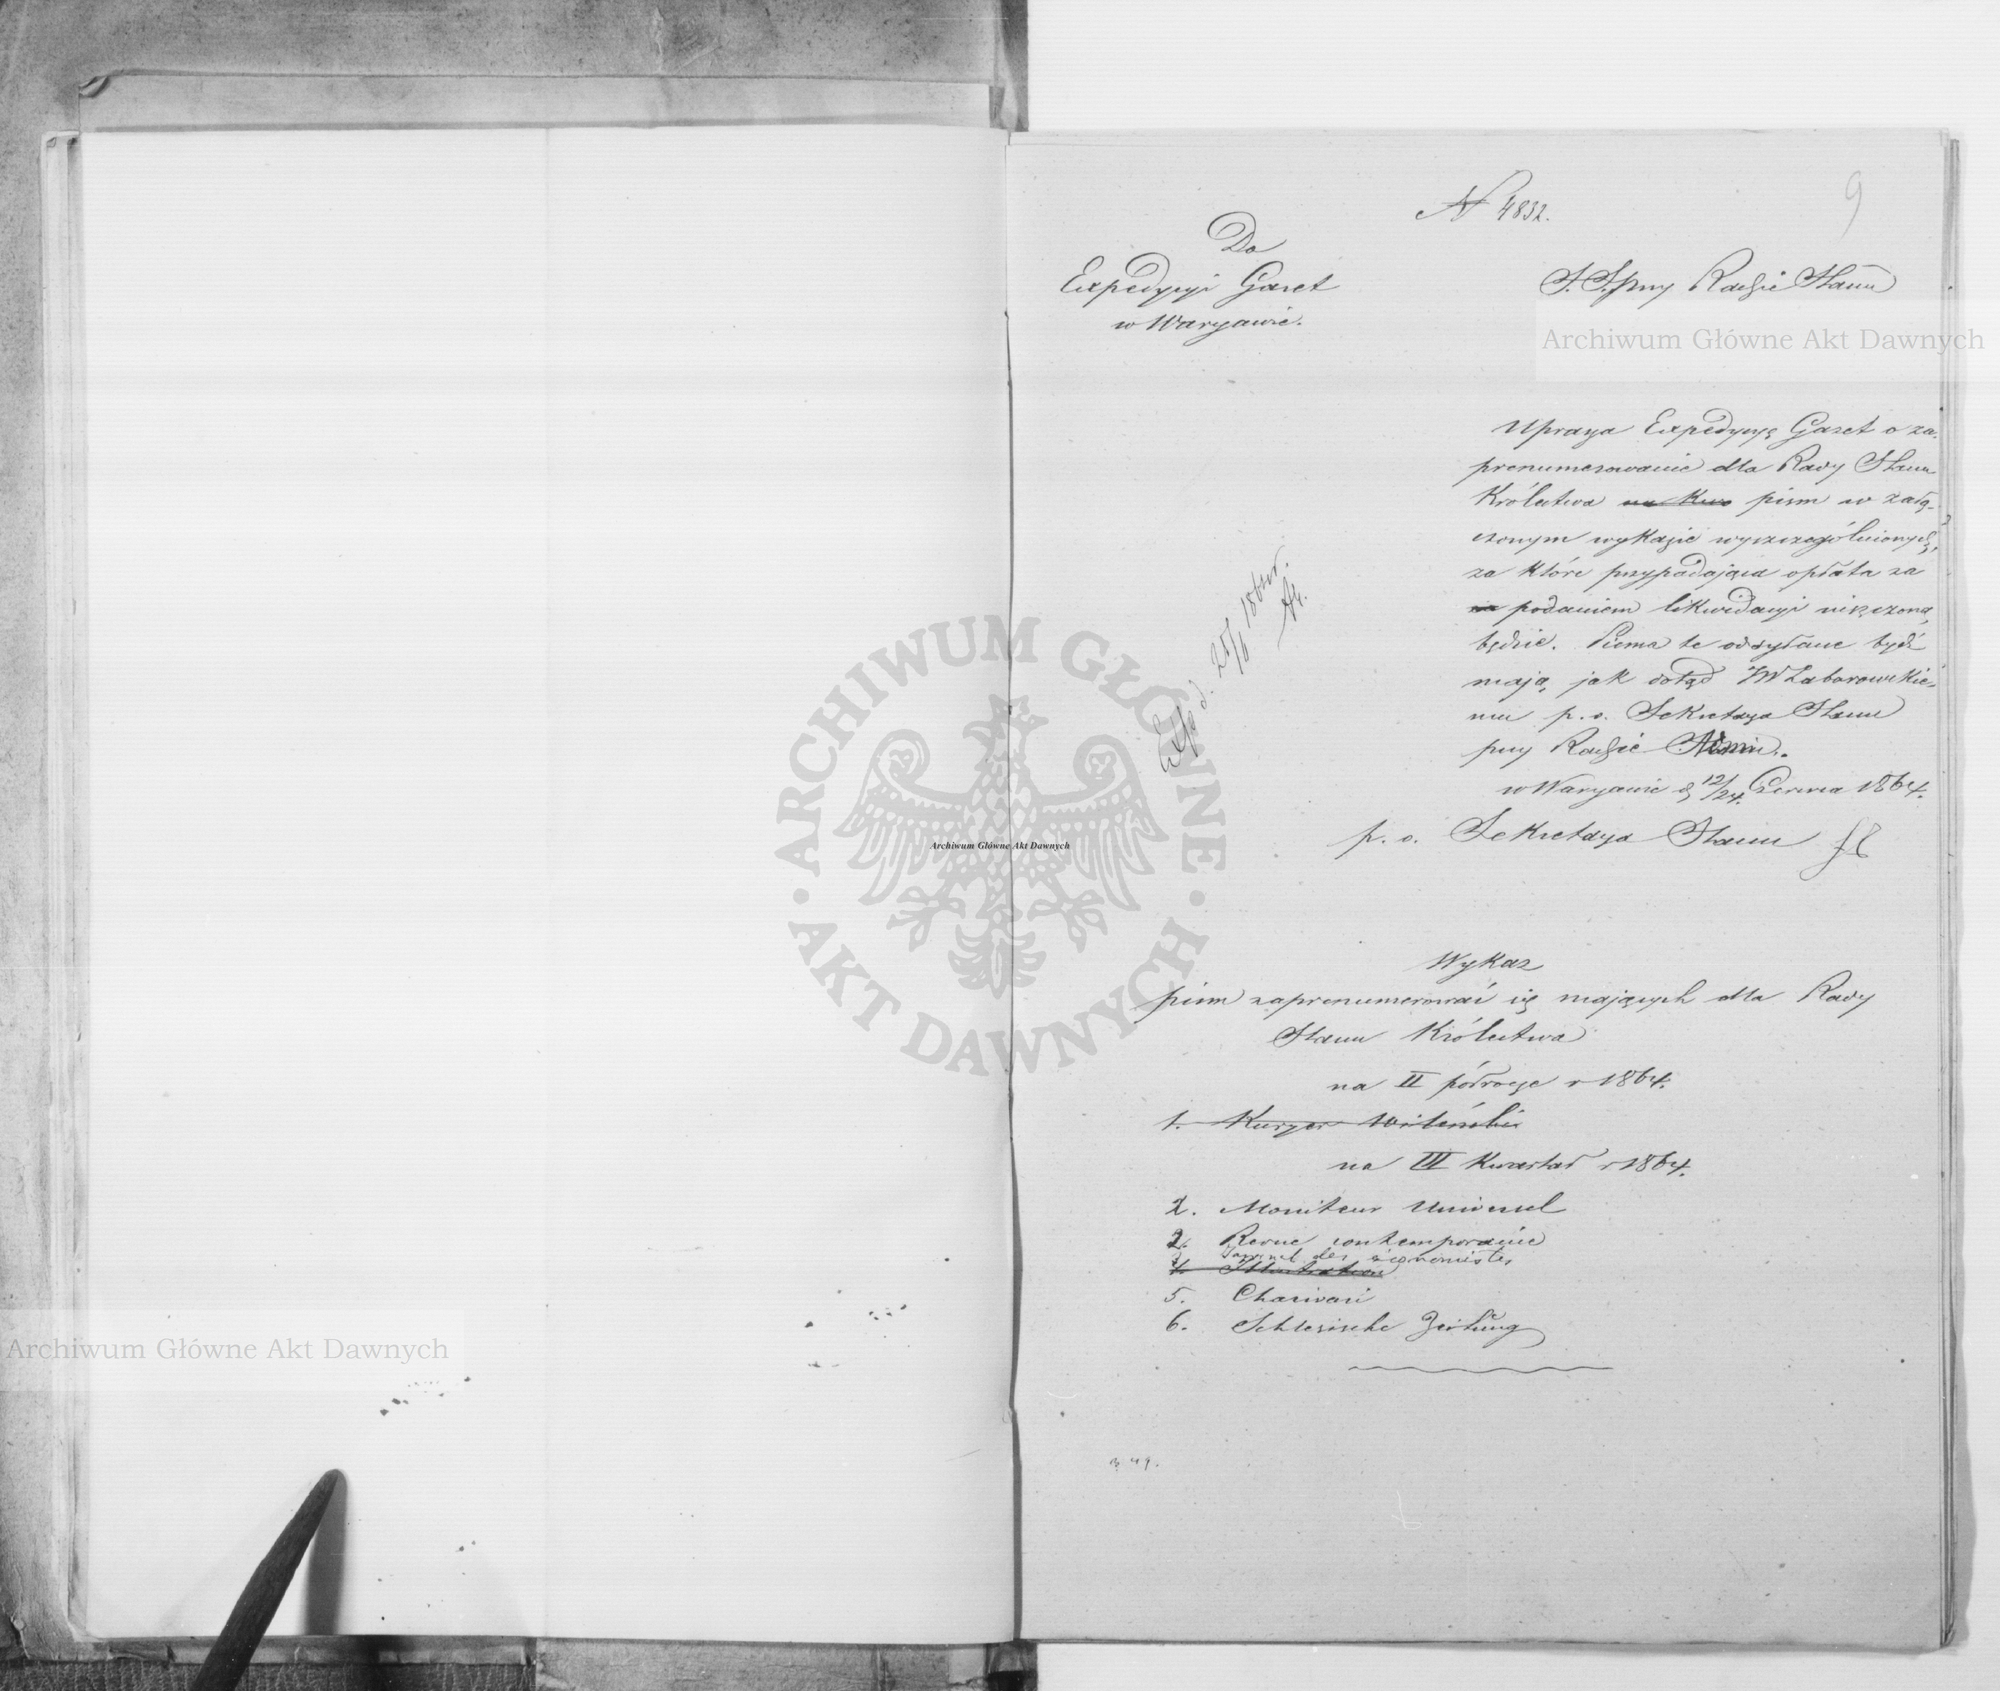 9
N 4832.
Do
Expedycyi Gazet
w Warszawie.
S. S. przy Radzie Stanu
Uprasza Expedycyę Gazet o za-
prenumerowanie dla Rady Stanu
Królestwa na Kwa pism w załą-
czonym wykazie wyszczególnionych,
za które przypadająca opłata za
podaniem likwidacyi uiszczoną
będzie. Pisma te odsyłane być
mają, jak dotąd JW Zaborowskie-
mu p. o. Sekretarza Stanu
przy Radzie Stanu.
w Warszawie d 12/24. Czerwca 1864.
p. o. Sekretarza Stanu
Exp d. 25/6 1864r.
Wykaz
pism zaprenumerować się mających dla Rady
Stanu Królestwa
na II półrocze r 1864.
1. Kuryer Wileński
na III Kwartał r 1864.
2. Moniteur Universel
2. Revue contemporaine
3. Journal des économistes
4. Illustration
5. Charivari
6. Schlesische Zeitung
49.
Archiwum Główne Akt Dawnych
Archiwum Główne Akt Dawnych
Archiwum Główne Akt Dawnych
ARCHIWUM GŁÓWNE AKT DAWNYCH